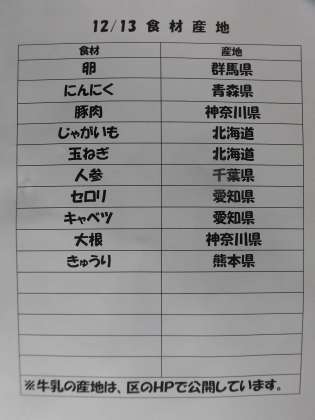 12/13 食材産地
食材 産地
卵 群馬県
にんにく 青森県
豚肉 神奈川県
じゃがいも 北海道
玉ねぎ 北海道
人参 千葉県
セロリ 愛知県
キャベツ 愛知県
大根 神奈川県
きゅうり 熊本県
※牛乳の産地は、区のHPで公開しています。